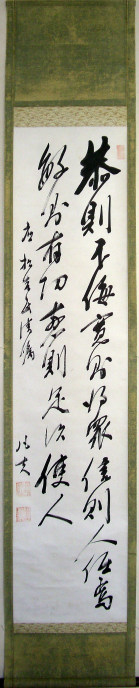 恭則不侮寛則得衆信則人任焉
敏則有功惠則足以使人